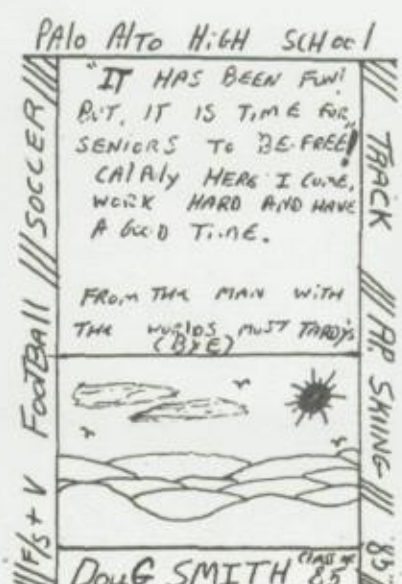 PAlo AlTo HiGH SCHooL
"IT HAS BEEN FUN!
BUT, IT IS TIME FOR
SENIORS TO BE FREE!"
CAl Poly HERE I COME,
WORK HARD AND HAVE
A GOOD TIME.
FROM THE MAN WITH
THE WORLDS MOST TARDYS
(BYE)
F/S + V FOOTBALL /// SOCCER ///
/// TRACK /// A.P. SKIING /// 85"
DOUG SMITH CLASS OF 85